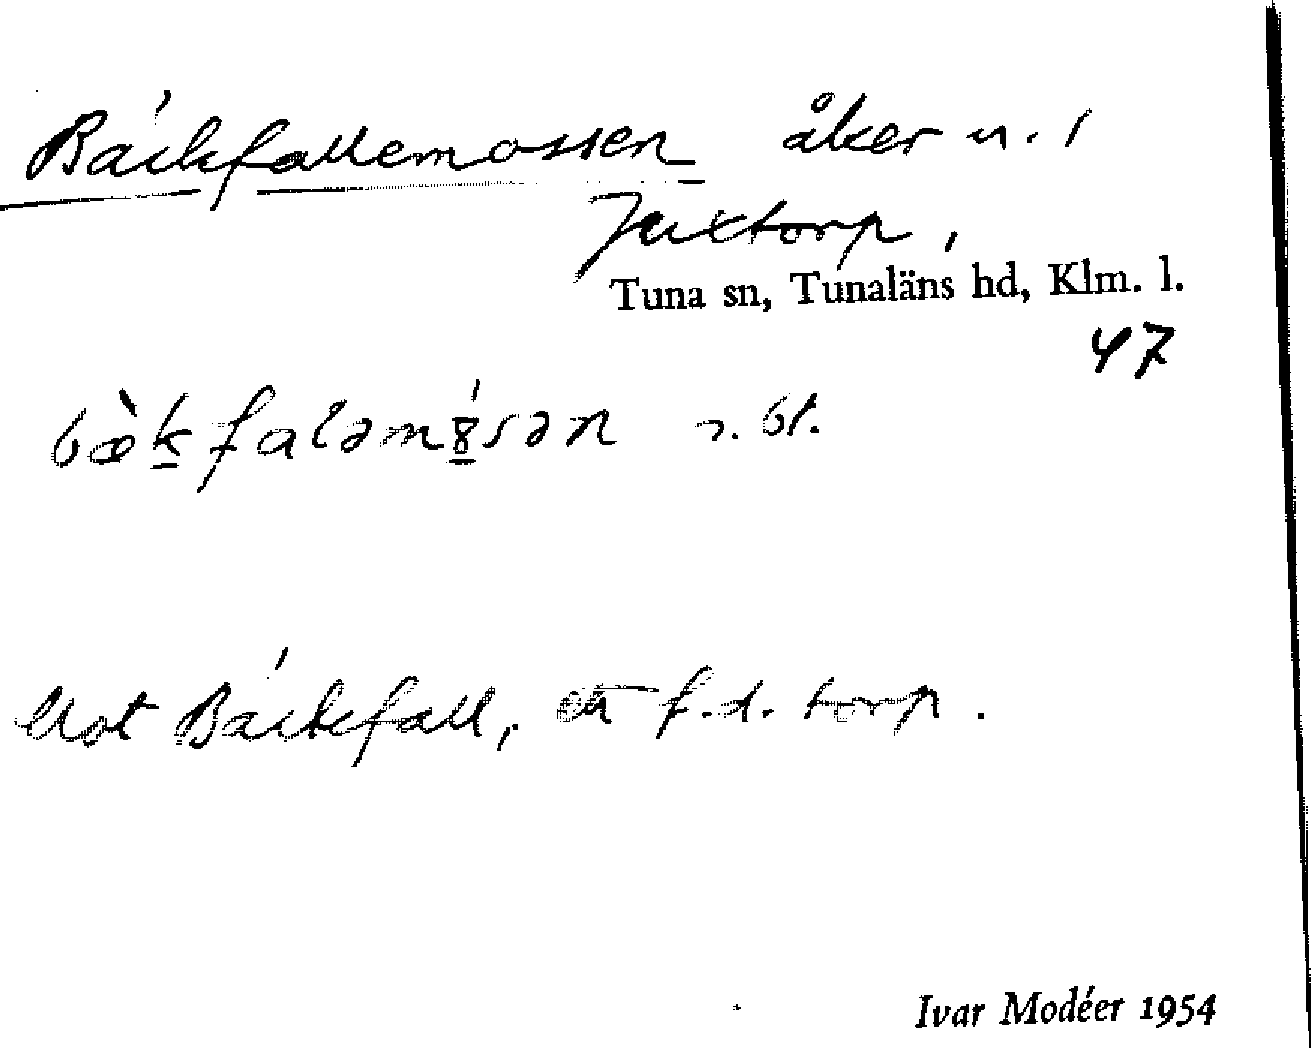 Bäckfallemossen åker n. i
Juxtorp,
Tuna sn, Tunaläns hd, Klm. l.
47
bæ̀kfaləm8́sən
Mot Bäckfall, en f.d. torp.
Ivar Modéer 1954